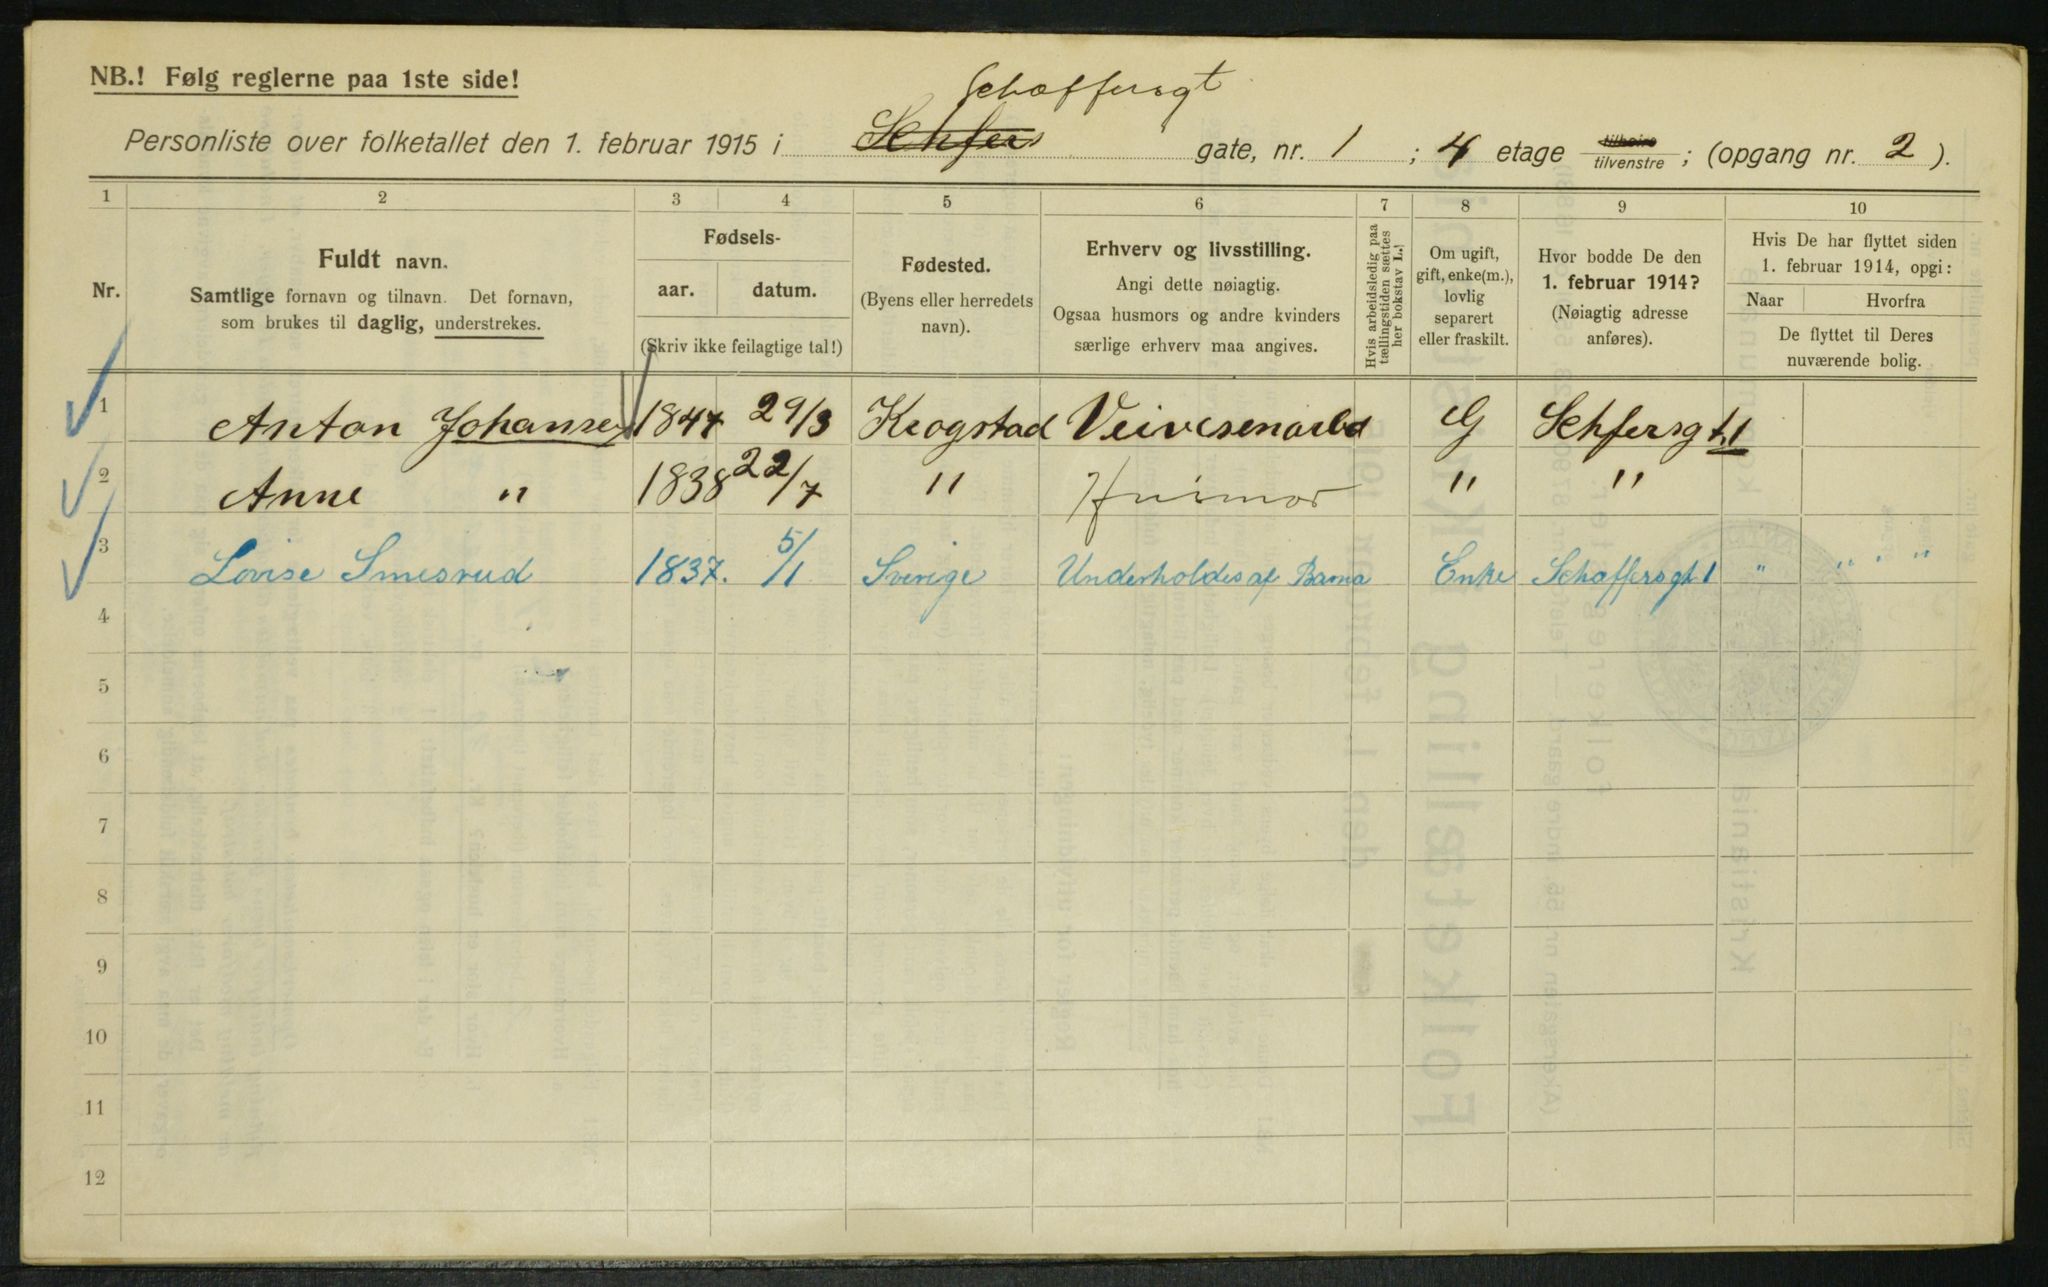 NB.! Følg reglerne paa 1ste side!
Schæffersgt
Personliste over folketallet den 1. februar 1915 i Schfers gate, nr. 1 ; 4 etage tilhøire tilvenstre ; (opgang nr. 2 ).
1 2 3 4 5 6 7 8 9 10
Nr.
Fuldt navn.
Samtlige fornavn og tilnavn. Det fornavn,
som brukes til daglig, understrekes.
Fødsels-
aar. datum.
(Skriv ikke feilagtige tal!)
Fødested.
(Byens eller herredets
navn).
Erhverv og livsstilling.
Angi dette nøiagtig.
Ogsaa husmors og andre kvinders
særlige erhverv maa angives.
Hvis arbeidsledig paa
tællingstiden sættes
her bokstav L.!
Om ugift,
gift, enke(m.),
lovlig
separert
eller fraskilt.
Hvor bodde De den
1. februar 1914?
(Nøiagtig adresse
anføres).
Hvis De har flyttet siden
1. februar 1914, opgi:
Naar Hvorfra
De flyttet til Deres
nuværende bolig.
1 Anton Johansen 1847 29/3 Krogstad Veivesenarbd G Schfersgt. 1
2 Anne " 1838 22/7 " Husmor " "
3 Lovise Smesrud 1837. 5/1 Sverige Underholdes af Barna Enke Schæffersgt 1 " " . "
4
5
6
7
8
9
10
11
12